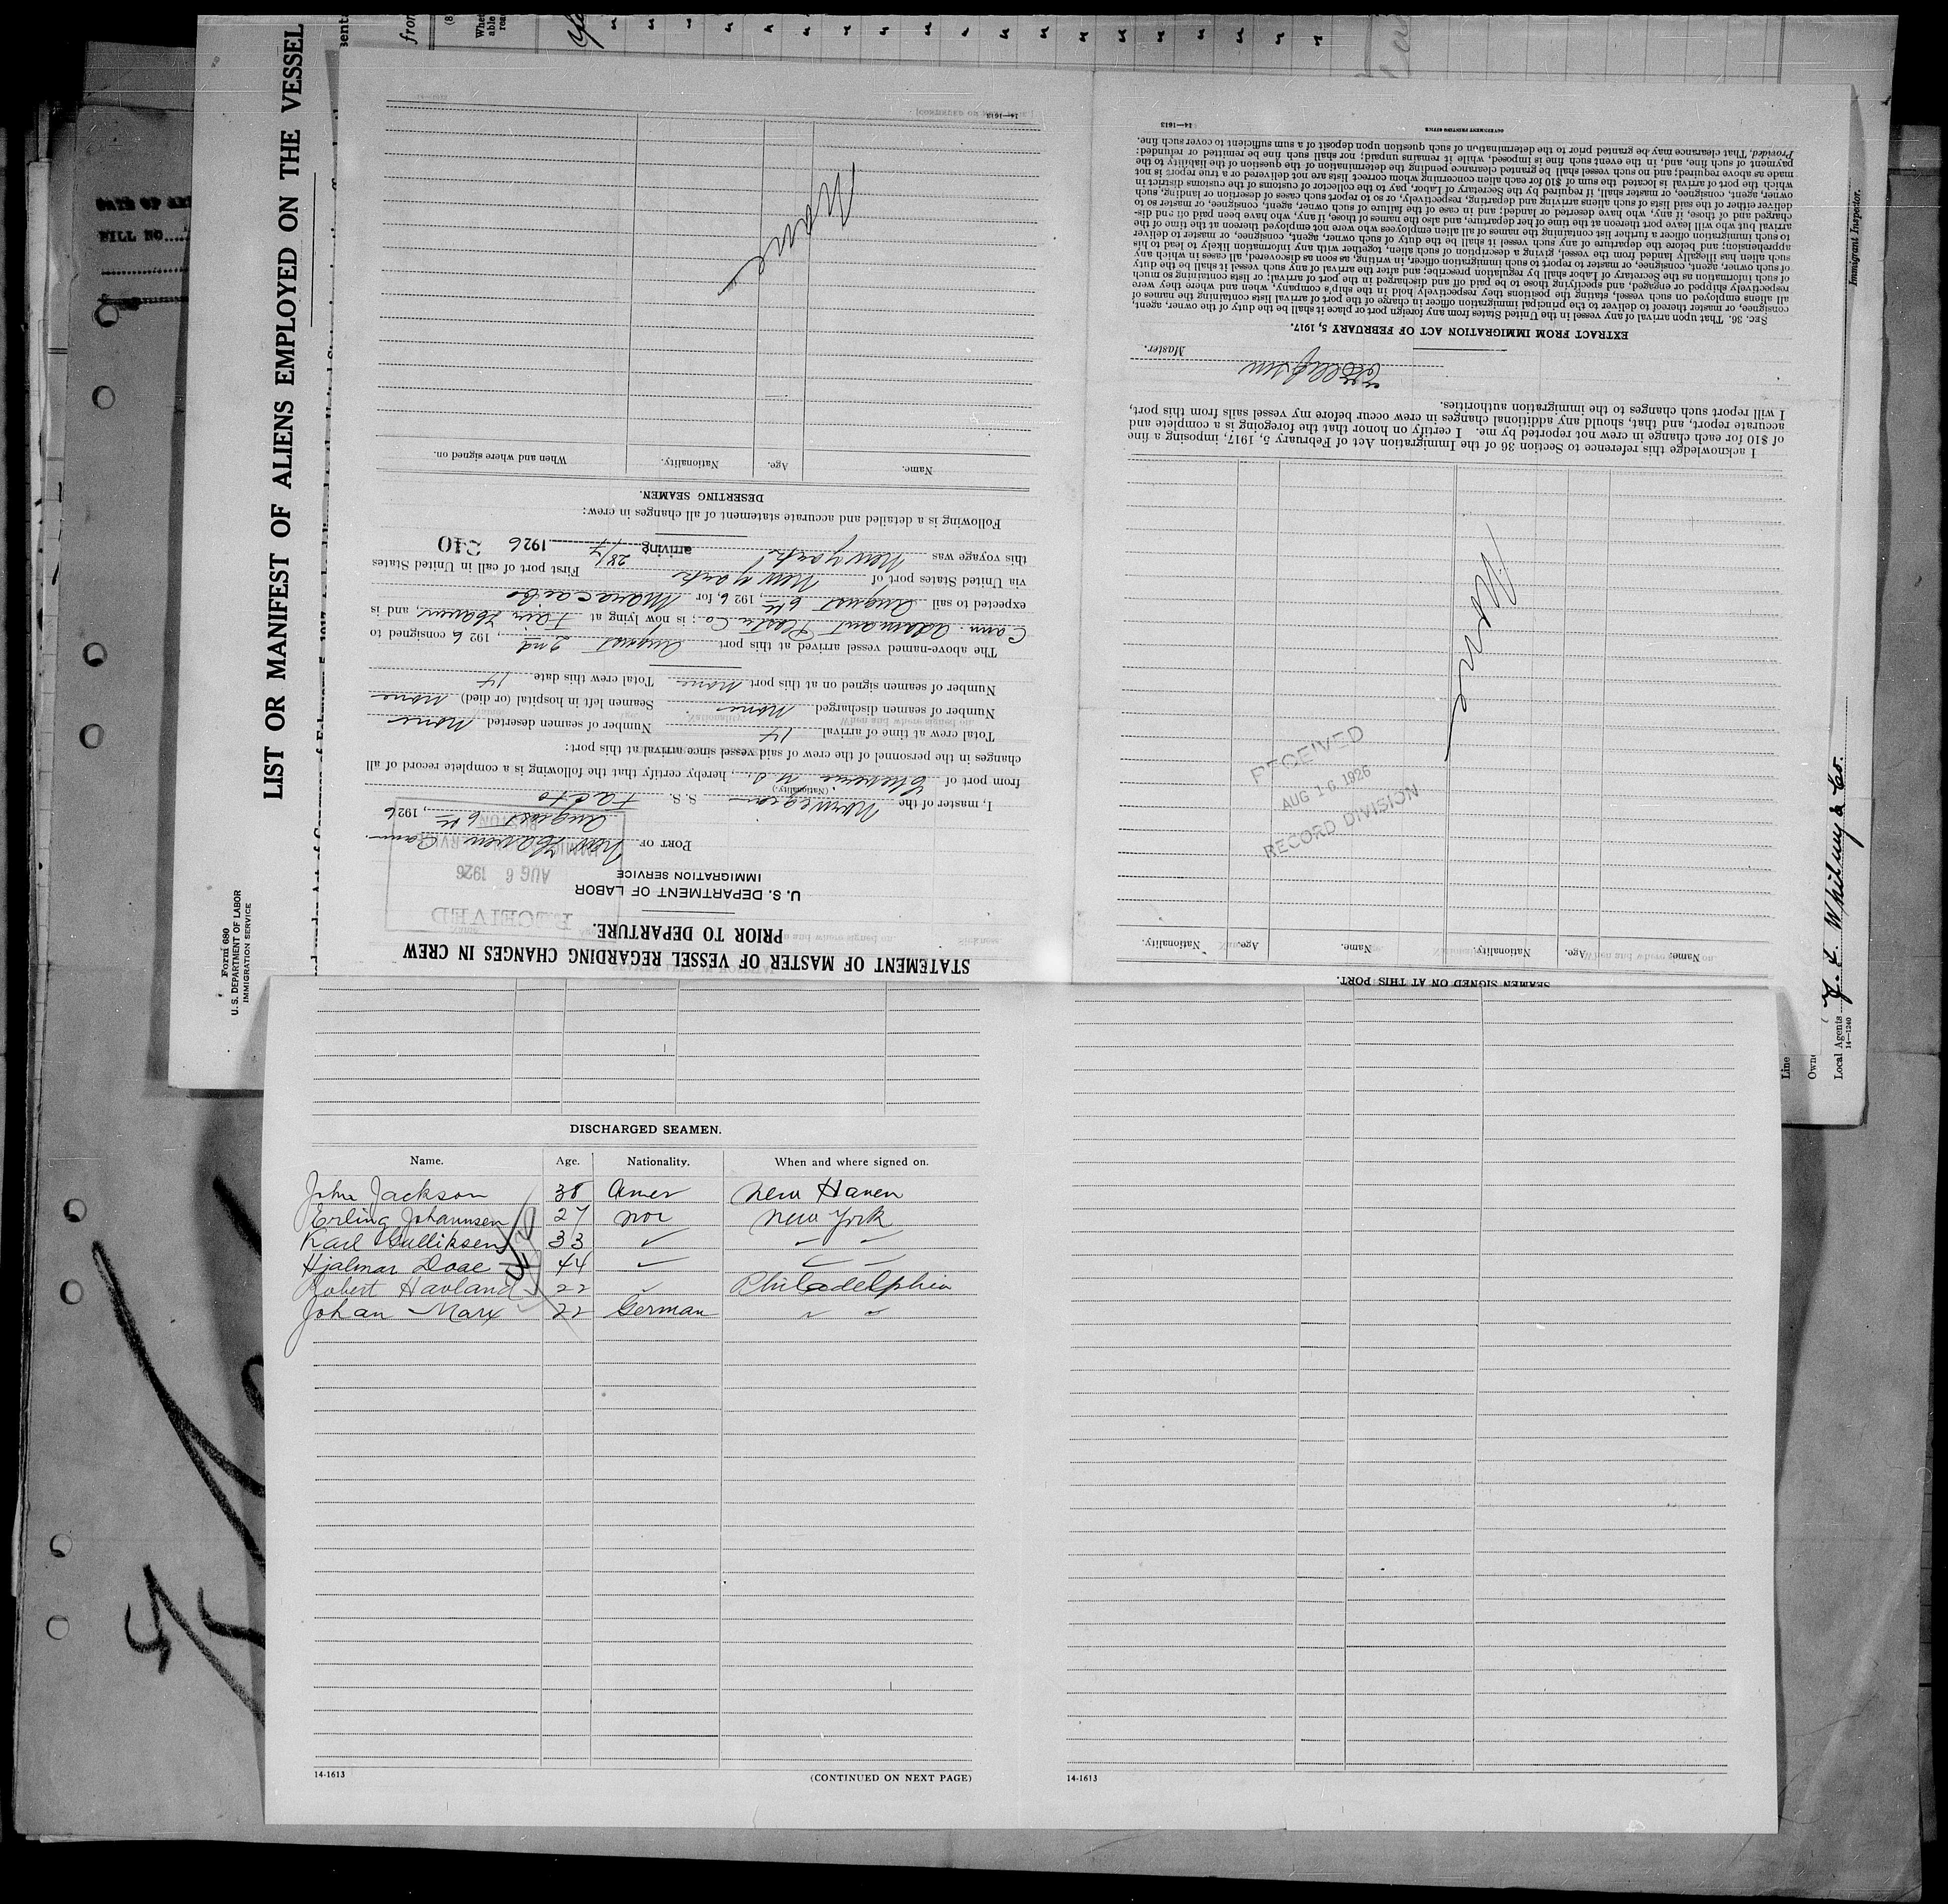 LIST OR MANIFEST OF ALIENS EMPLOYED ON THE VESSEL
Form 680
U. S. DEPARTMENT OF LABOR
IMMIGRATION SERVICE
BILL NO.
STATEMENT OF MASTER OF VESSEL REGARDING CHANGES IN CREW
PRIOR TO DEPARTURE.
U. S. DEPARTMENT OF LABOR
IMMIGRATION SERVICE
RECEIVED
AUG 6 1926
PORT OF New Haven Conn
August 6th, 1926
I, master of the Norwegian S. S. Facto
(Nationality.)
from port of N.S. hereby certify that the following is a complete record of all
changes in the personnel of the crew of said vessel since arrival at this port:
Total crew at time of arrival 14 Number of seamen deserted None
Number of seamen discharged None Seamen left in hospital (or died) None
Number of seamen signed on at this port None Total crew this date 14
The above-named vessel arrived at this port August 2nd, 1926 consigned to
Conn. Adamant Plaster Co.; is now lying at Fair Haven, and is
expected to sail August 6th, 1926, for Maracaibo
via United States port of New York First port of call in United States
this voyage was New York arriving 28/7 1926
240
Following is a detailed and accurate statement of all changes in crew:
DESERTING SEAMEN.
Name. Age. Nationality. When and where signed on.
None
14—1613
SEAMEN SIGNED ON AT THIS PORT.
Name. Age. Nationality. Name. Age. Nationality.
None
RECEIVED
AUG 16 1926
RECORD DIVISION
I acknowledge this reference to Section 36 of the Immigration Act of February 5, 1917, imposing a fine
of $10 for each change in crew not reported by me. I certify on honor that the foregoing is a complete and
accurate report, and that, should any additional changes in crew occur before my vessel sails from this port,
I will report such changes to the immigration authorities.
Master.
EXTRACT FROM IMMIGRATION ACT OF FEBRUARY 5, 1917.
SEC. 36. That upon arrival of any vessel in the United States from any foreign port or place it shall be the duty of the owner, agent,
consignee, or master thereof to deliver to the principal immigration officer in charge of the port of arrival lists containing the names of
all aliens employed on such vessel, stating the positions they respectively hold in the ship's company, when and where they were
respectively shipped or engaged, and specifying those to be paid off and discharged in the port of arrival; or lists containing so much
of such information as the Secretary of Labor shall by regulation prescribe; and after the arrival of any such vessel it shall be the duty
of such owner, agent, consignee, or master to report to such immigration officer, in writing, as soon as discovered, all cases in which any
such alien has illegally landed from the vessel, giving a description of such alien, together with any information likely to lead to his
apprehension; and before the departure of any such vessel it shall be the duty of such owner, agent, consignee, or master to deliver
to such immigration officer a further list containing the names of all alien employees who were not employed thereon at the time of the
arrival but who will leave port thereon at the time of her departure, and also the names of those, if any, who have been paid off and dis-
charged and of those, if any, who have deserted or landed; and in case of the failure of such owner, agent, consignee, or master so to
deliver either of the said lists of such aliens arriving and departing, respectively, or so to report such cases of desertion or landing, such
owner, agent, consignee, or master shall, if required by the Secretary of Labor, pay to the collector of customs of the customs district in
which the port of arrival is located the sum of $10 for each alien concerning whom correct lists are not delivered or a true report is not
made as above required; and no such vessel shall be granted clearance pending the determination of the question of the liability to the
payment of such fine, and, in the event such fine is imposed, while it remains unpaid; nor shall such fine be remitted or refunded:
Provided, That clearance may be granted prior to the determination of such question upon deposit of a sum sufficient to cover such fine.
14—1613
GOVERNMENT PRINTING OFFICE
Immigrant Inspector.
Line
Local Agents J. L. Whitney & Co.
14—1240
DISCHARGED SEAMEN.
Name. Age. Nationality. When and where signed on.
John Jackson 38 Amer New Haven
Erling Johannsen 27 Nor New York
Karl Gulliksen 33
Hjalmar Doae 44
Robert Havland 22 Philadelphia
Johan Marx 22 German
14-1613
(CONTINUED ON NEXT PAGE)
14-1613